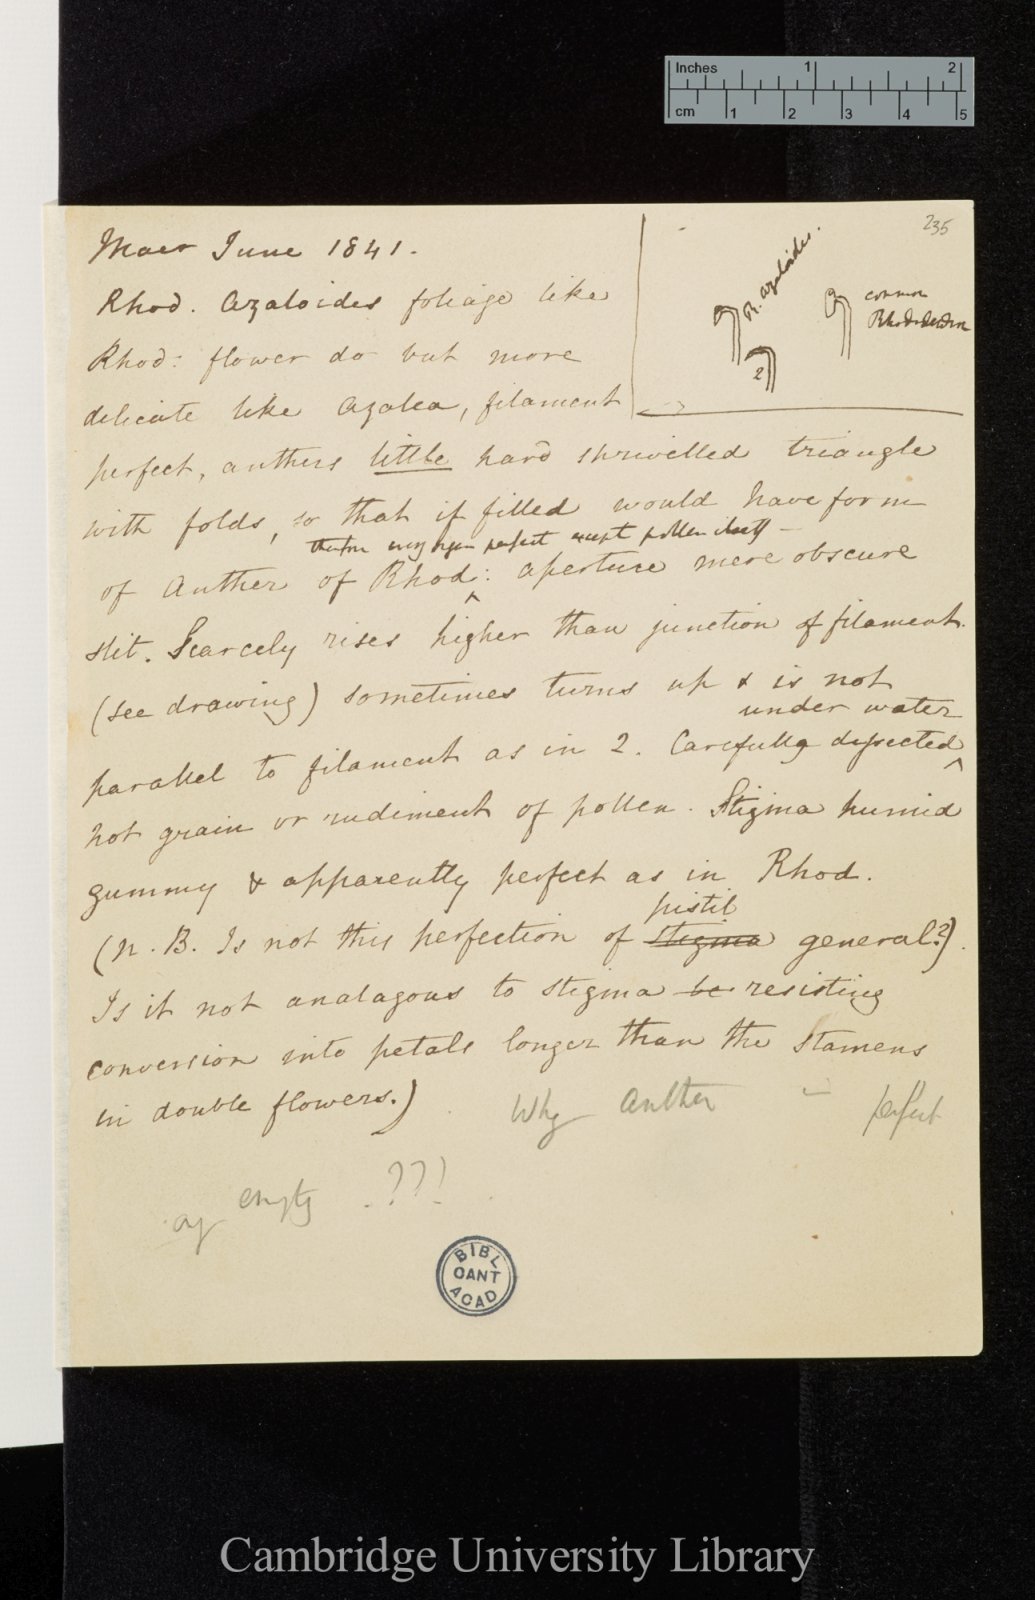 Inches 1 2
cm 1 2 3 4 5
235
Maer June 1841.
Rhod. Azaloides foliage like
Rhod: flower do but more
delicate like Azalea, filament
R. azaloides.
common
Rhododendron
2
perfect, anthers little hard shrivelled triangle
with folds, so that if filled would have form
therefore every organ perfect except pollen itself —
of Anther of Rhod: aperture mere obscure
slit. Scarcely rises higher than junction of filament.
(see drawing) sometimes turns up & is not
under water
parallel to filament as in 2. Carefully dissected
not grain or rudiment of pollen. Stigma humid
gummy & apparently perfect as in Rhod.
pistil
(N.B. Is not this perfection of stigma general?).
Is it not analagous to stigma be resisting
conversion into petals longer than the stamens
in double flowers.) Why anther perfect
empty ??!
BIBL
CANT
ACAD
Cambridge University Library